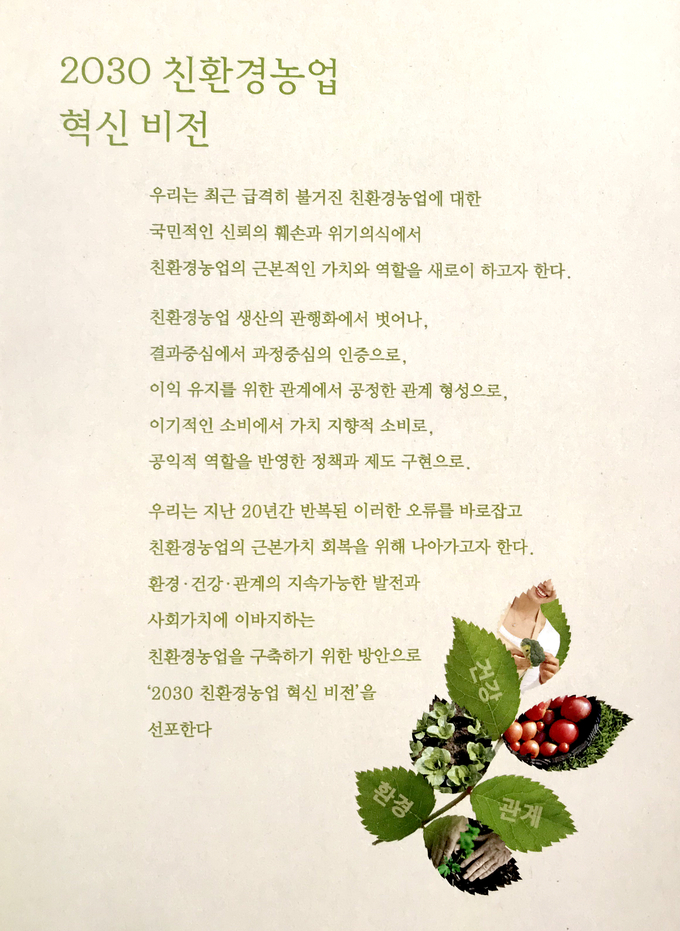 2030 친환경농업
혁신 비전
우리는 최근 급격히 불거진 친환경농업에 대한
국민적인 신뢰의 훼손과 위기의식에서
친환경농업의 근본적인 가치와 역할을 새로이 하고자 한다.
친환경농업 생산의 관행화에서 벗어나,
결과중심에서 과정중심의 인증으로,
이익 유지를 위한 관계에서 공정한 관계 형성으로,
이기적인 소비에서 가치 지향적 소비로,
공익적 역할을 반영한 정책과 제도 구현으로.
우리는 지난 20년간 반복된 이러한 오류를 바로잡고
친환경농업의 근본가치 회복을 위해 나아가고자 한다.
환경·건강·관계의 지속가능한 발전과
사회가치에 이바지하는
친환경농업을 구축하기 위한 방안으로
‘2030 친환경농업 혁신 비전’을
선포한다
건강
환경
관계